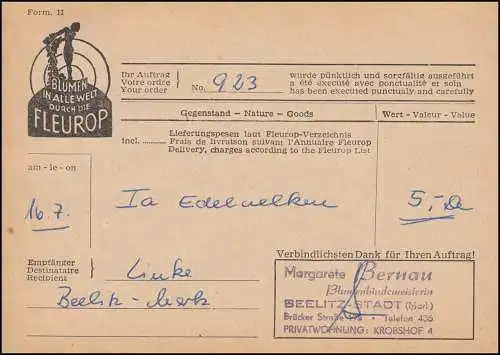 Form. 11
BLUMEN
IN ALLE WELT
DURCH DIE
FLEUROP
Ihr Auftrag
Votre ordre
Your order
No. 923
wurde pünktlich und sorgfältig ausgeführt
a été exécuté avec ponctualité et soin
has been executed punctually and carefully
Gegenstand – Nature – Goods
Wert – Valeur – Value
incl. ..........
Lieferungspesen laut Fleurop-Verzeichnis
Frais de livraison suivant l'Annuaire Fleurop
Delivery, charges according to the Fleurop List
am - le - on
16.7.
Ia Edelnelken
5,-
Empfänger
Destinataire
Recipient
Linke
Beelitz-Mark
Verbindlichsten Dank für Ihren Auftrag!
Margarete Bernau
Blumenbindemeisterin
BEELITZ-STADT (Mark)
Brücker Straße • Telefon 435
PRIVATWOHNUNG: KROBSHOF 4